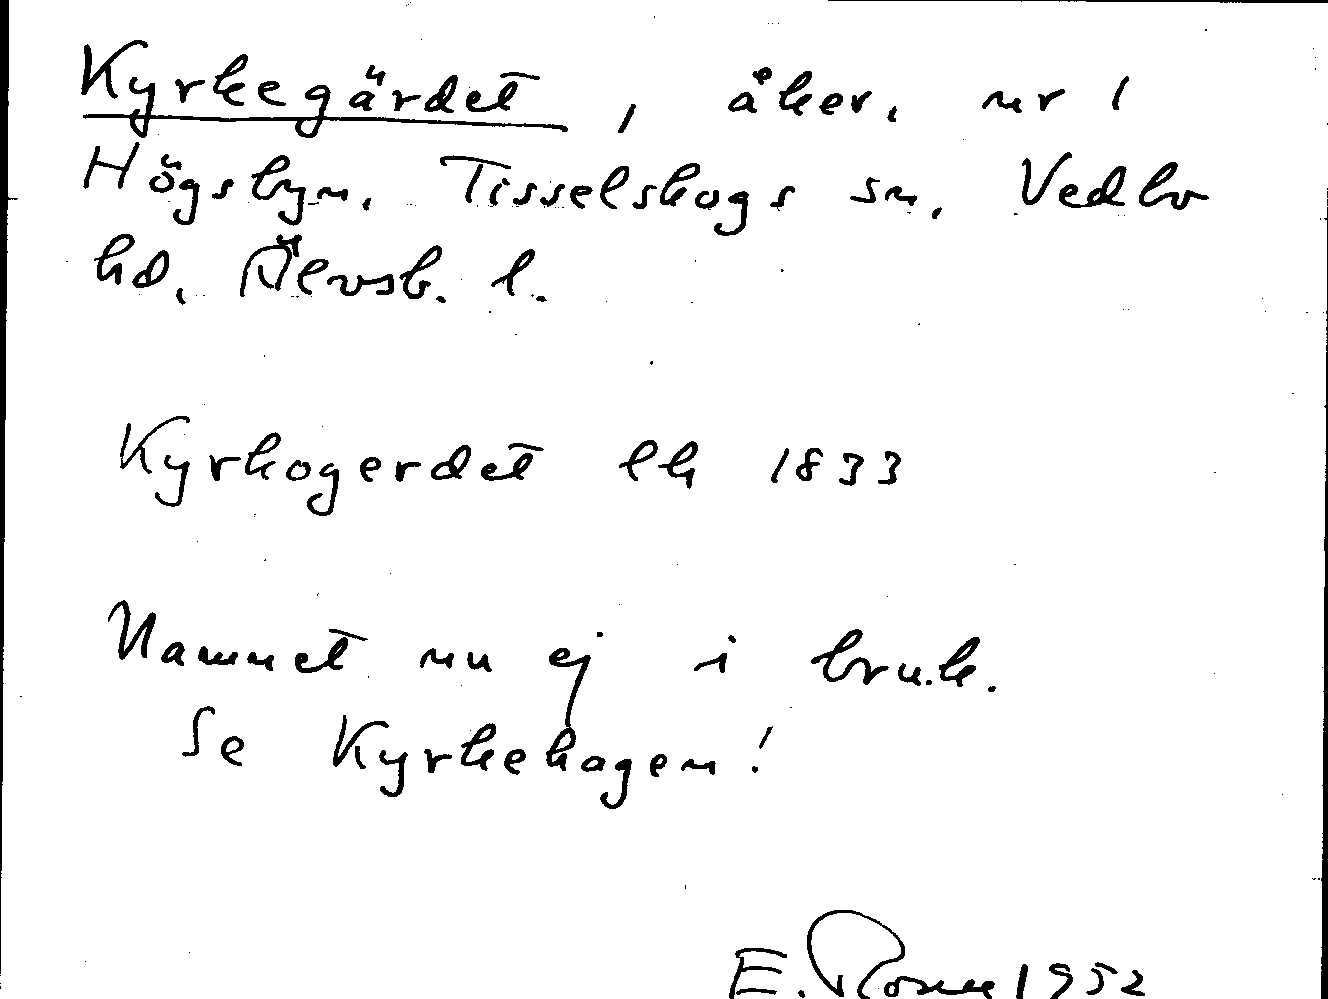 Kyrkegärdet, åker, nr 1
Högsbyn. Tisselskogs sn, Vedbo
hd, Älvsb. l.
Kyrkogerdet lh 1833
Namnet nu ej i bruk.
Se Kyrkehagen!
E. 1952